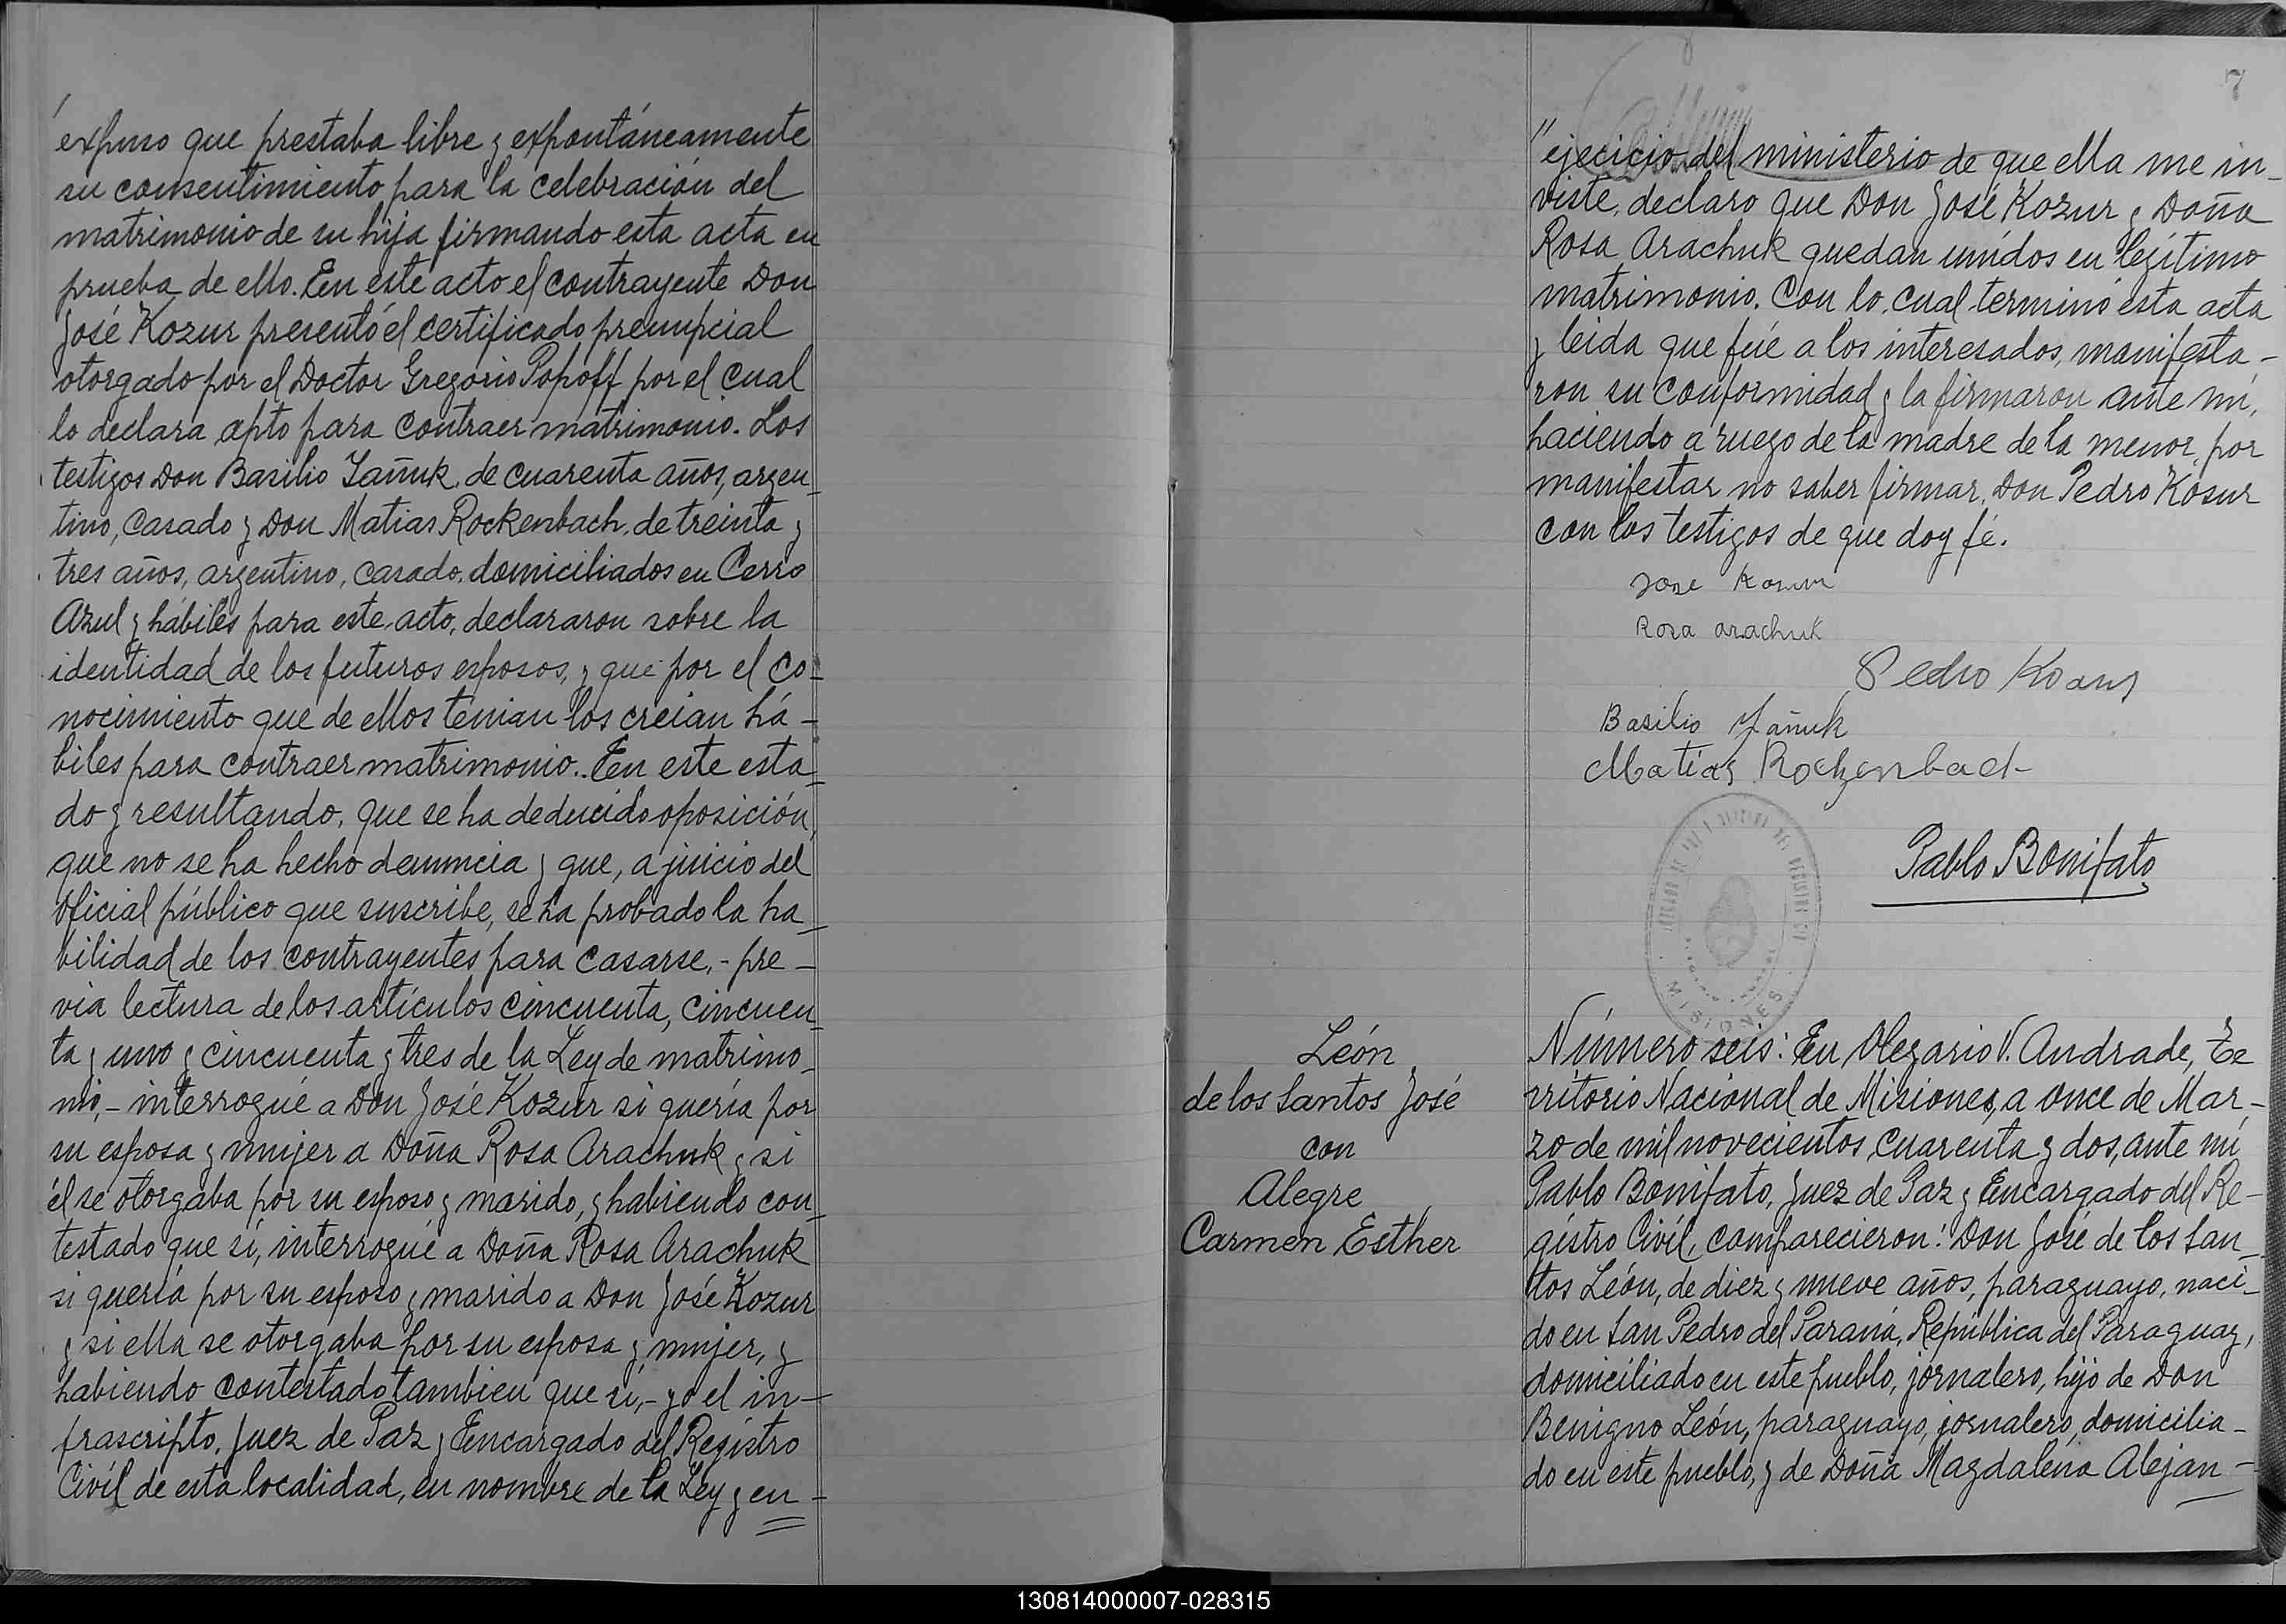 expuso que prestaba libre y expontáneamente
su consentimiento para la celebración del
matrimonio de su hija firmando esta acta en
prueba de ello. En este acto el contrayente Don
José Kozur presentó el certificado prenupcial
otorgado por el Doctor Gregorio Popoff por el cual
lo declara apto para contraer matrimonio. Los
testigos Don Basilio Yañuk, de cuarenta años, argen_
tino, casado y Don Matias Rockenbach, de treinta y
tres años, argentino, casado, domiciliados en Cerro
Azul y hábiles para este acto, declararon sobre la
identidad de los futuros esposos, y que por el co_
nocimiento que de ellos tenian los creian há-
biles para contraer matrimonio.. En este esta_
do y resultando, que se ha deducido oposición,
que no se ha hecho denuncia y que, a juicio del
oficial público que suscribe, se ha probado la ha_
bilidad de los contrayentes para casarse,- pre-
via lectura de los artículos cincuenta, cincuen_
ta y uno y cincuenta y tres de la Ley de matrimo_
nio,- interrogué a Don José Kozur si quería por
su esposa y mujer a Doña Rosa Arachuk y si
él se otorgaba por su esposo y marido, y habiendo con_
testado que sí, interrogué a Doña Rosa Arachuk
si quería por su esposo y marido a Don José Kozur
y si ella se otorgaba por su esposa y mujer, y
habiendo contestado tambien que sí,- yo el in-
frascripto, Juez de Paz y Encargado del Registro
Civíl de esta localidad, en nombre de la Ley y en -
7
" ejecicio del ministerio de que ella me in_
viste, declaro que Don José Kozur y Doña
Rosa Arachuk quedan unidos en legítimo
matrimonio. Con lo cual terminó esta acta
y leida que fué a los interesados, manifesta -
ron su conformidad y la firmaron ante mí,
haciendo a ruego de la madre de la menor, por
manifestar no saber firmar, Don Pedro Kosur
con los testigos de que doy fé.
Jose Kosur
Rosa arachuk
Pedro
Basilio Yañuk
Matías Rockenbach
Pablo Bonifato
MISIONES
León
de los Santos José
con
Alegre
Carmen Esther
Número seis: En Olegario V. Andrade, Te
rritorio Nacional de Misiones, a once de Mar-
zo de mil novecientos cuarenta y dos, ante mí
Pablo Bonifato, Juez de Paz y Encargado del Re-
gistro Civíl, comparecieron: Don José de los San_
tos León, de diez y nueve años, paraguayo, naci_
do en San Pedro del Paraná, República del Paraguay,
domiciliado en este pueblo, jórnalero, hijo de Don
Benigno León, paraguayo, jornalero, domicilia-
do en este pueblo, y de Doña Magdalena Alejan-
130814000007-028315